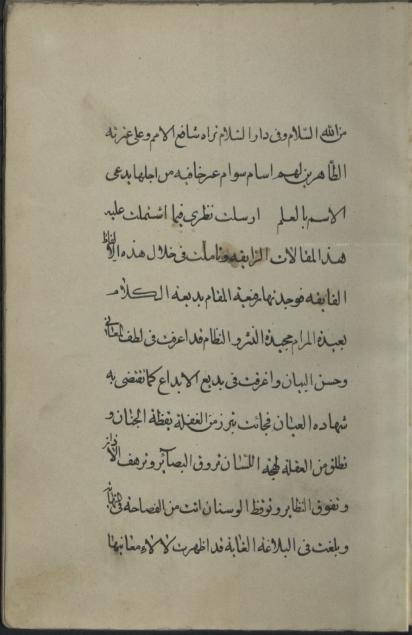 من الله السلام وفى دار السلام نراه شافع الامم وعلى عترته
الطاهرين لهم اسام سوام عرخافيه من اجلها يدعى
الاسم بالعلم ارسلت نظرى فيما اشتملت عليه
هذا المقالات الرايقه وتاملت فى خلال هذه الالفاظ
الفايقه فوجدتها رفيعة المقام بديعة الكلام
بعيدة المرام مجيدة النثر والنظام قد اعرقت فى لطف المعانى
وحسن البيان واغرقت فى بديع الابداع كما تقتضى به
شهادة العيان فجائت تبرز من الغفلة يقظة الجنان و
تطلق من العقلة لهجة اللسان تروق البصآئر وترهف الاذان
وتفوق النظاير وتوقظ الوسنان اتت من الفصاحة فى النهاية
وبلغت فى البلاغة الغاية قد اظهرت لالاء معانيها